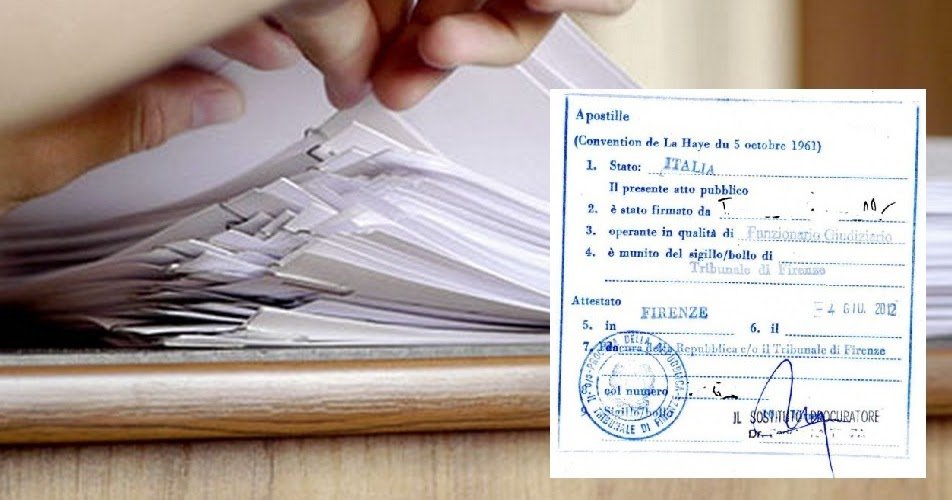 Apostille
(Convention de La Haye du 5 octobre 1961)
1. Stato: ITALIA
Il presente atto pubblico
2. è stato firmato da
3. operante in qualità di Funzionario Giudiziario
4. è munito del sigillo/bollo di
Tribunale di Firenze
Attestato
5. in FIRENZE 6. il 4 GIU. 2012
7. Procura della Repubblica c/o il Tribunale di Firenze
col numero
Sigillo/bollo
IL SOSTITUTO PROCURATORE